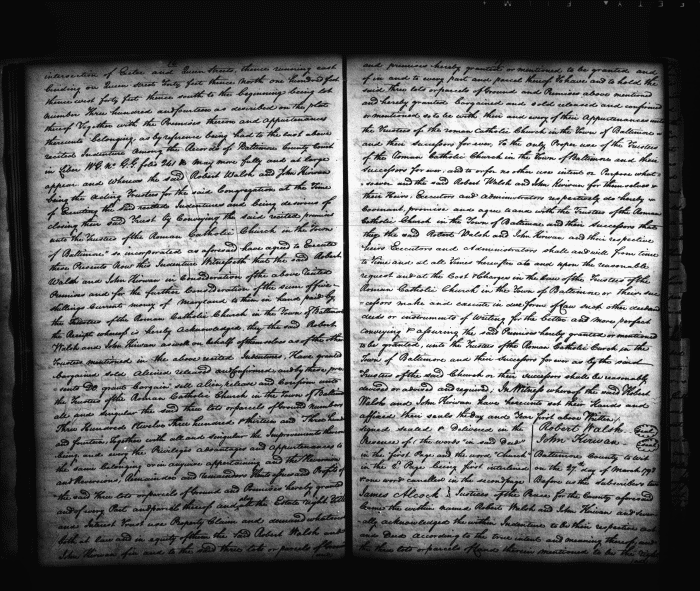 intersection of Exeter and Queen Streets, thence running east
binding on Queen street Forty feet thence North one hundred feet
thence west forty feet thence south to the beginning being lot
number Three hundred and fourteen as described on the plat
thereof Together with the Premises thereon and appurtenances
thereunto belonging, as by reference being had to the last above
recited Indenture Among the Records of Baltimore County Court
in Liber W.G. No G.G folio 241 &c may more fully and at large
appear. and Whereas the said Robert Walsh and John Kirwan
being the Acting Trustees for the said Congregation at the Time
of Executing the said recited Indentures and being desirous of
closing their said Trust by Conveying the said recited premises
unto the Trustees of the Roman Catholic Church in the Town
of Baltimore so incorporated as aforesaid have agreed to Execute
these Presents Now this Indenture Witnesseth that the said Robert
Walsh and John Kirwan in Consideration of the above recited
Premises and for the further Consideration of the sum of five
shillings Current money of Maryland to them in hand paid by
the Trustees of the Roman Catholic Church in the Town of Baltimore
the Receipt whereof is hereby Acknowledged, they the said Robert
Walsh and John Kirwan as well on behalf of themselves as of the other
Trustees mentioned in the above recited Indentures, Have granted
bargained sold Aliened released and confirmed and by these presents
sents DO grant bargain sell alien release and Confirm unto
the Trustees of the Roman Catholic Church in the Town of Baltimore
all and singular the said three lots or parcels of Ground Number
Three Hundred & twelve Three hundred & thirteen and Three hund
and fourteen together with all and singular the Improvements thereon
being and every the Privileges advantages and Appurtenances to
the same belonging or in anywise appertaining and the Reversion
and Reversions, Remainder and remainders Rents Issues and Profits of
the said three lots or parcels of Ground and Premises hereby granted
and of every Part and parcel thereof and also all the Estate right Title
and Interest Trust use Property Claim and demand whatsoever
both at law and in equity of them the said Robert Walsh and
John Kirwan, of in and to the said three lots or parcels of Ground
and premises hereby granted or mentioned to be granted and
of in and to every part and parcel thereof To have and to hold the
said three lots or parcels of Ground and Premises above mentioned
and hereby granted bargained and sold released and confirmed
or mentioned so to be with their and every of their Appurtenances unto
the Trustees of the roman Catholic Church in the Town of Baltimore
and their successors for ever. To the only Proper use of the Trustees
of the Roman Catholic Church in the Town of Baltimore and their
successors for ever; and to or for no other use intent or Purpose what-
soever and the said Robert Walsh and John Kirwan for themselves &
their Heirs, Executors and Administrators respectively do hereby
Covenant, promise and agree to and with the Trustees of the Roman
Catholic Church in the Town of Baltimore and their Successors that
they the said Robert Walsh and John Kirwan and their respective
heirs Executors and Administrators shall and will from time
to Time and at all Times hereafter at and upon the reasonable
request and at the Cost & Charges in the Law of the Trustees of the
Roman Catholic Church in the Town of Baltimore or their suc
cessors make and execute in due form of Law such other deed and
deeds or instruments of Writing for the better and more perfect
conveying & assuring the said Premises hereby granted or mentioned
to be granted, unto the Trustees of the Roman Catholic Church in the
Town of Baltimore and their Successors for ever as by the
Trustees of the said Church or their Successors shall be reasonably
devised or advised and required. In Witness whereof the said Robert
Walsh and John Kirwan have hereunto set their Hands and
affixed their seals the day and Year first above Written.
signed sealed & delivered in the Robert Walsh
Presence of: the words "in said Deed" John Kirwan
in the first Page and the word "Church" Baltimore County to wit
in the 2d Page being first interlined on the 27th day of March
& one word cancelled in the second page Before us the subscribers two
James Alcock Justices of the Peace for the County aforesaid
Came the within named Robert Walsh and John Kirwan and sever
ally acknowledged the within Indenture to be their respective act
and Deed According to the true intent and meaning thereof and
the three lots or parcels of Land therein mentioned to be the right